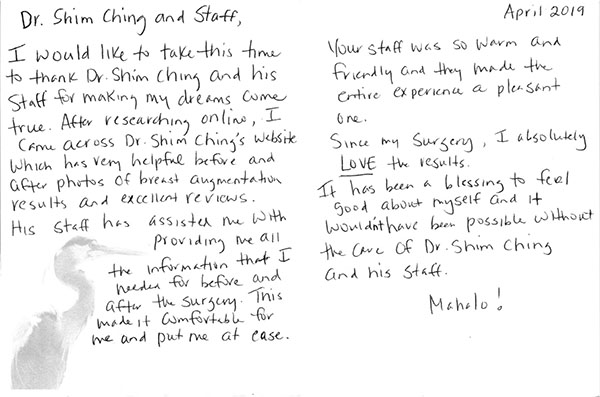 Dr. Shim Ching and Staff,
I would like to take this time
to thank Dr. Shim Ching and his
Staff for making my dreams come
true. After researching online, I
came across Dr. Shim Ching's website
which has very helpful before and
after photos of breast augmentation
results and excellent reviews.
His staff has assisted me with
providing me all
the information that I
needed for before and
after the surgery. This
made it comfortable for
me and put me at ease.
April 2019
Your staff was so warm and
friendly and they made the
entire experience a pleasant
one.
Since my surgery, I absolutely
LOVE the results.
It has been a blessing to feel
good about myself and it
wouldn't have been possible without
the care of Dr. Shim Ching
and his staff.
Mahalo!